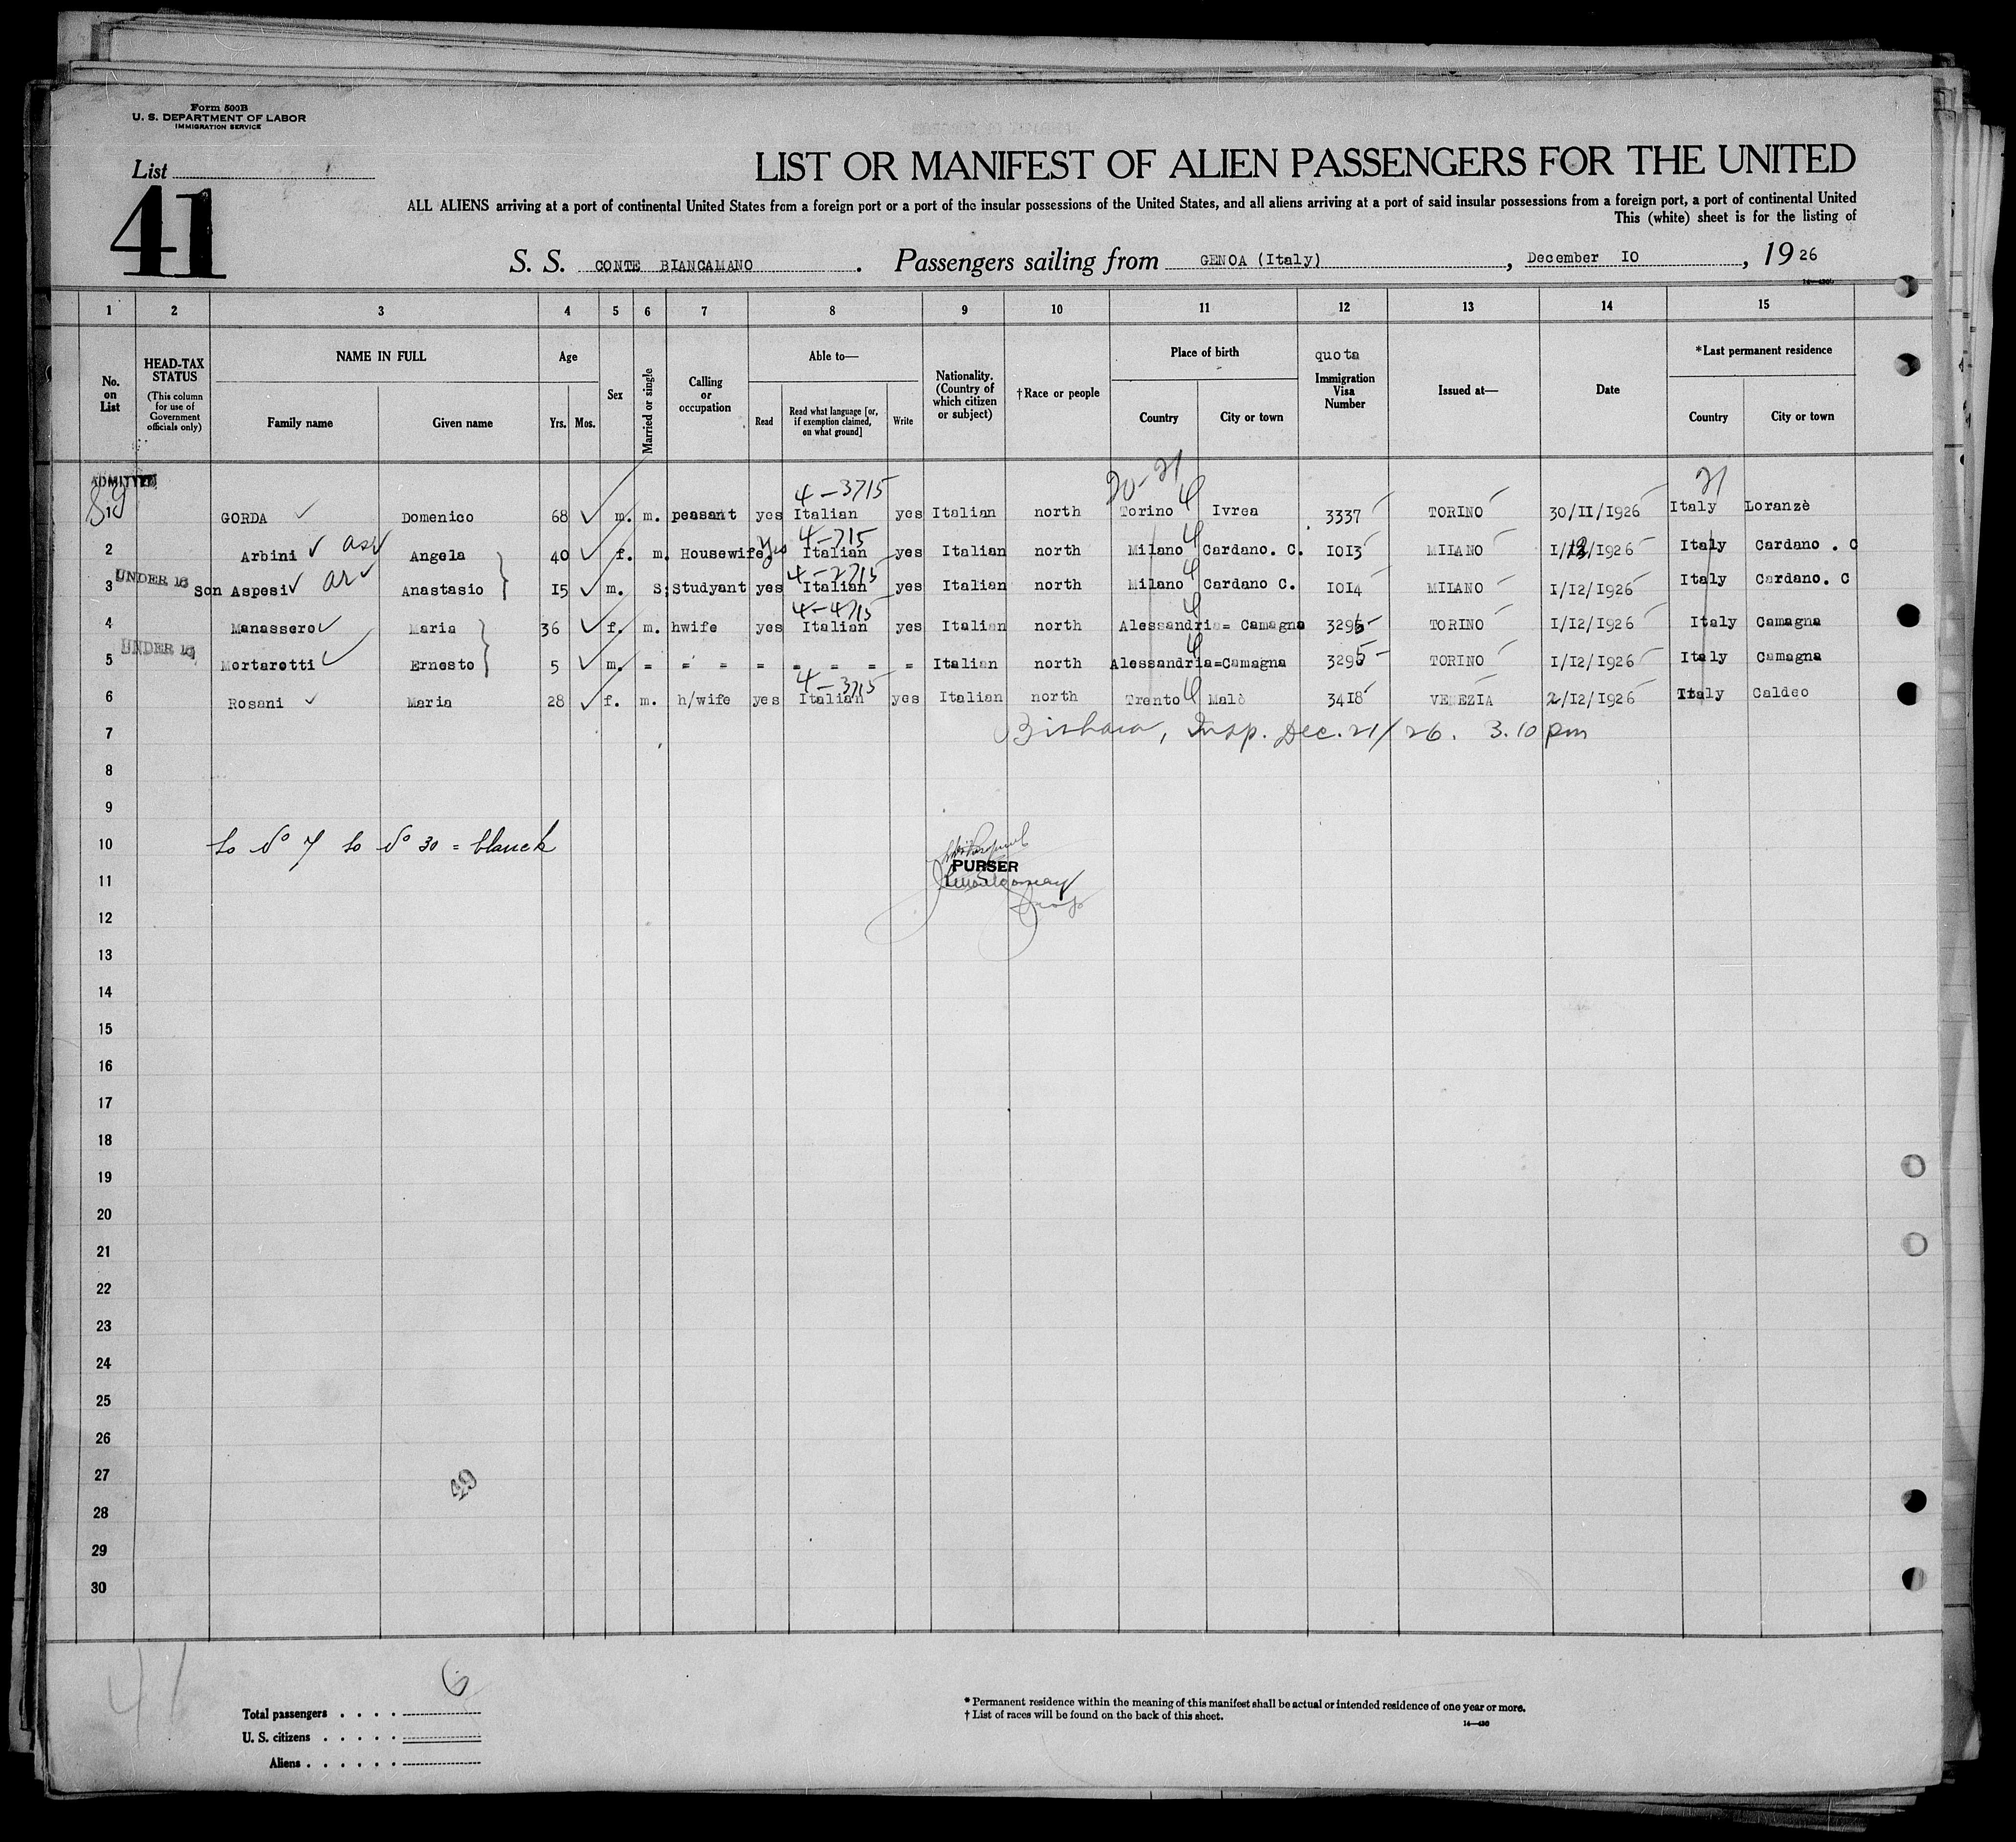 Form 500B
U. S. DEPARTMENT OF LABOR
IMMIGRATION SERVICE
List
41
LIST OR MANIFEST OF ALIEN PASSENGERS FOR THE UNITED
ALL ALIENS arriving at a port of continental United States from a foreign port or a port of the insular possessions of the United States, and all aliens arriving at a port of said insular possessions from a foreign port, a port of continental United
This (white) sheet is for the listing of
S. S. CONTE BIANCAMANO . Passengers sailing from GENOA (Italy) , December IO , 19 26
1 2 3 4 5 6 7 8 9 10 11 12 13 14 15
No. on List
HEAD-TAX STATUS (This column for use of Government officials only)
NAME IN FULL
Family name Given name
Age
Yrs. Mos.
Sex
Married or single
Calling or occupation
Able to—
Read Read what language [or, if exemption claimed, on what ground] Write
Nationality. (Country of which citizen or subject)
†Race or people
Place of birth
Country City or town
quota
Immigration Visa Number
Issued at—
Date
*Last permanent residence
Country City or town
ADMITTED
4-3715 20-21 21
1 GORDA Domenico 68 m. m. peasant yes Italian yes Italian north Torino 4 Ivrea 3337 TORINO 30/II/1926 Italy Loranzè
4-715
2 Arbini Angela 40 f. m. Housewife yes Italian yes Italian north Milano 4 Cardano. C. IOI3 MILANO I/12/1926 Italy Cardano . C
UNDER 16 4-2715
3 Son Aspesi Anastasio I5 m. S; Studyant yes Italian yes Italian north Milano 4 Cardano C. IOI4 MILANO I/12/1926 Italy Cardano. C
4-4715
4 Manassero Maria 36 f. m. hwife yes Italian yes Italian north Alessandria= Camagna 3295 TORINO I/12/1926 Italy Camagna
UNDER 16
5 Mortarotti Ernesto 5 m. = = = = = = = = Italian north Alessandria=Camagna 3295 TORINO I/12/1926 Italy Camagna
4-3715
6 Rosani Maria 28 f. m. h/wife yes Italian yes Italian north Trento 4 Malè 34I8 VENEZIA 2/12/1926 Italy Caldeo
7 Insp. Dec. 21/26. 3.10 pm
8
9
10 to No 7 to No 30 = blanck
PURSER
11
12
13
14
15
16
17
18
19
20
21
22
23
24
25
26
27
49
28
29
30
41
6
Total passengers . . . .
U. S. citizens . . . . .
Aliens . . . . . .
* Permanent residence within the meaning of this manifest shall be actual or intended residence of one year or more.
† List of races will be found on the back of this sheet.
14—430